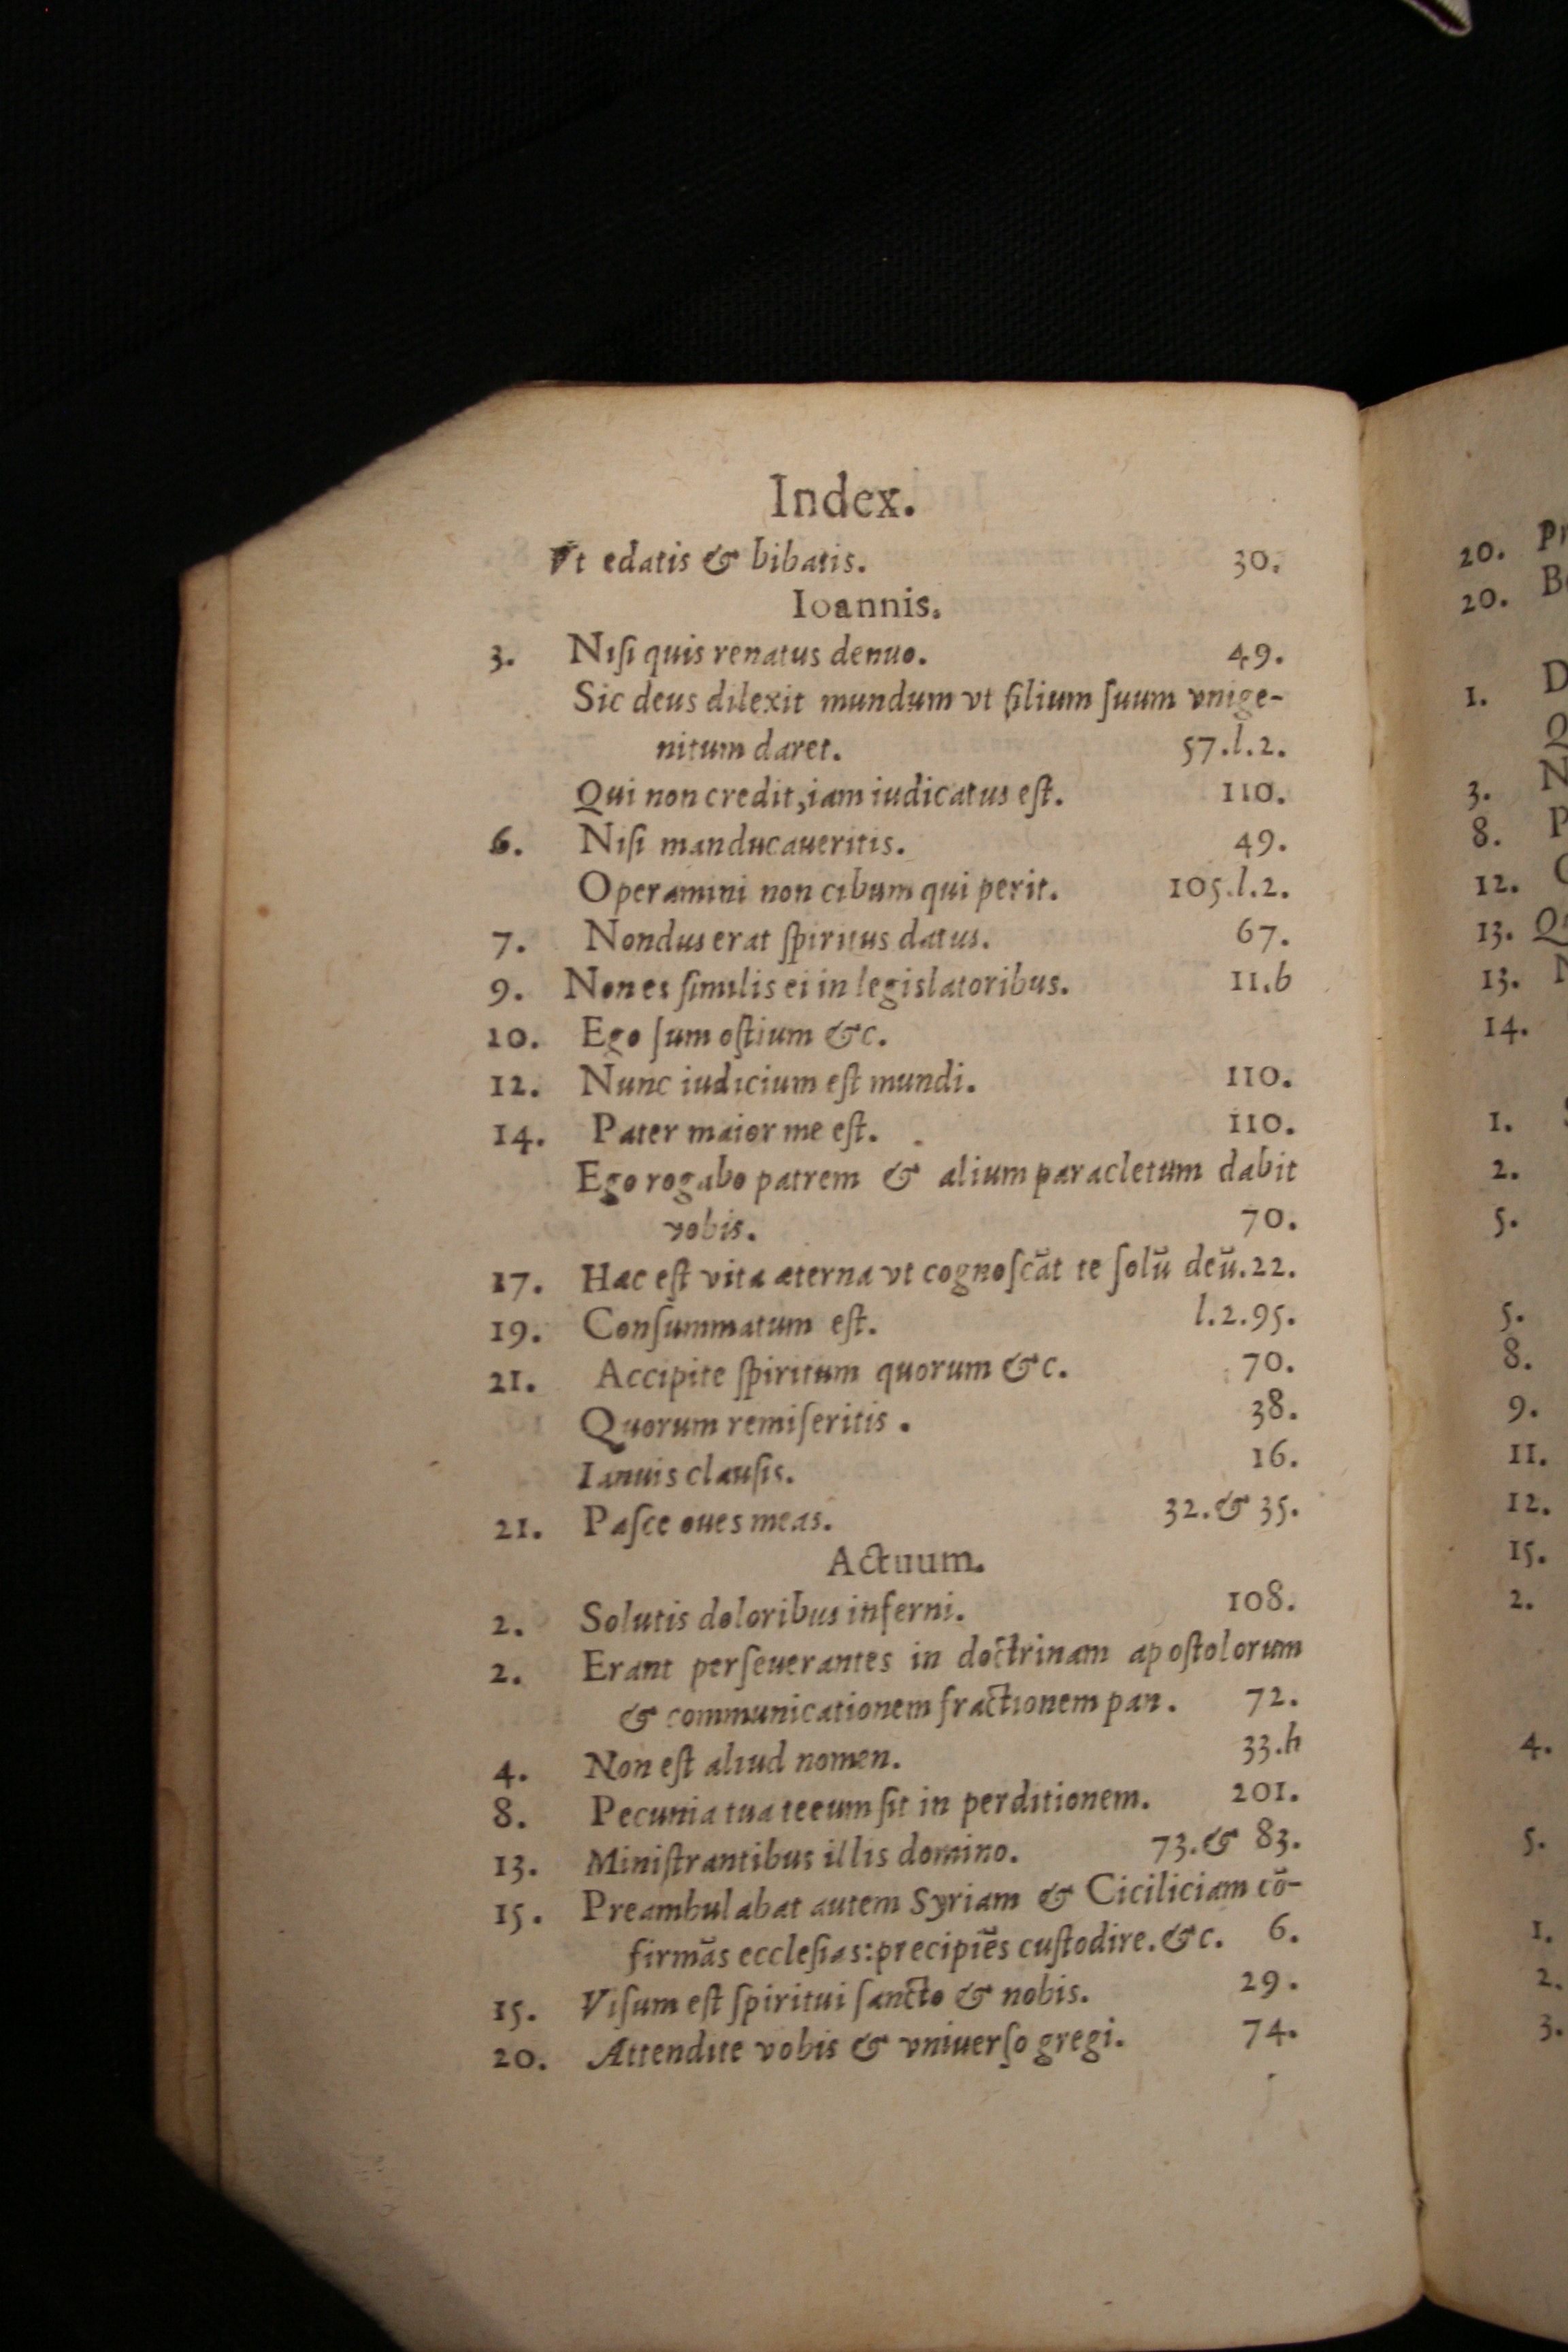 Index.
Vt edatis & bibatis. 30.
Ioannis.
3. Niſi quis renatus denuo. 49.
Sic deus dilexit mundum vt filium ſuum vnige-
nitum daret. 57.l.2.
Qui non credit,iam iudicatus eſt. 110.
6. Niſi manducaueritis. 49.
Operamini non cibum qui perit. 105.l.2.
7. Nondus erat ſpiritus datus. 67.
9. Non es ſimilis ei in legislatoribus. 11.b
10. Ego ſum oſtium &c.
12. Nunc iudicium eſt mundi. 110.
14. Pater maior me eſt. 110.
Ego rogabo patrem & alium paracletum dabit
vobis. 70.
17. Hac eſt vita æterna vt cognoſcāt te ſolū deū.22.
19. Conſummatum eſt. l.2.95.
21. Accipite ſpiritum quorum &c. 70.
Quorum remiſeritis . 38.
Ianuis clauſis. 16.
21. Paſce oues meas. 32.& 35.
Actuum.
2. Solutis doloribus inferni. 108.
2. Erant perſeuerantes in doctrinam apoſtolorum
& communicationem fractionem pan. 72.
4. Non eſt aliud nomen. 33.h
8. Pecunia tua teeum ſit in perditionem. 201.
13. Miniſtrantibus illis domino. 73.& 83.
15. Preambulabat autem Syriam & Ciciliciam cō-
firmās eccleſias:precipiēs cuſtodire.&c. 6.
15. Viſum eſt ſpiritui ſancto & nobis. 29.
20. Attendite vobis & vniuerſo gregi. 74.
20.
20.
1.
3.
8.
12.
13.
13.
14.
1.
2.
5.
5.
8.
9.
11.
12.
15.
2.
4.
5.
1.
2.
3.